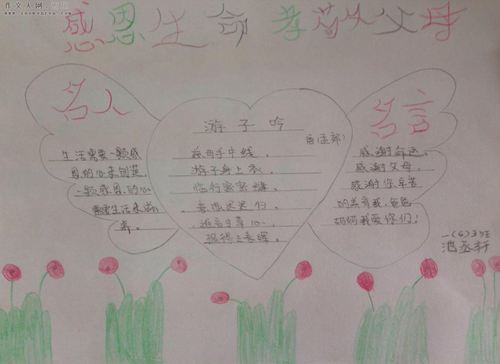 作文人网
感恩生命 孝敬父母
名人
名言
游子吟
慈母手中线，
游子身上衣。
临行密密缝，
意恐迟迟归。
谁言寸草心，
报得三春晖。
生活需要一颗感
恩的心来创造
一颗感恩的心
需要生活来滋
养。
感谢命运，
感谢父母，
感谢你辛苦
的养育我，爸爸
妈妈我爱你们！
一(6)班